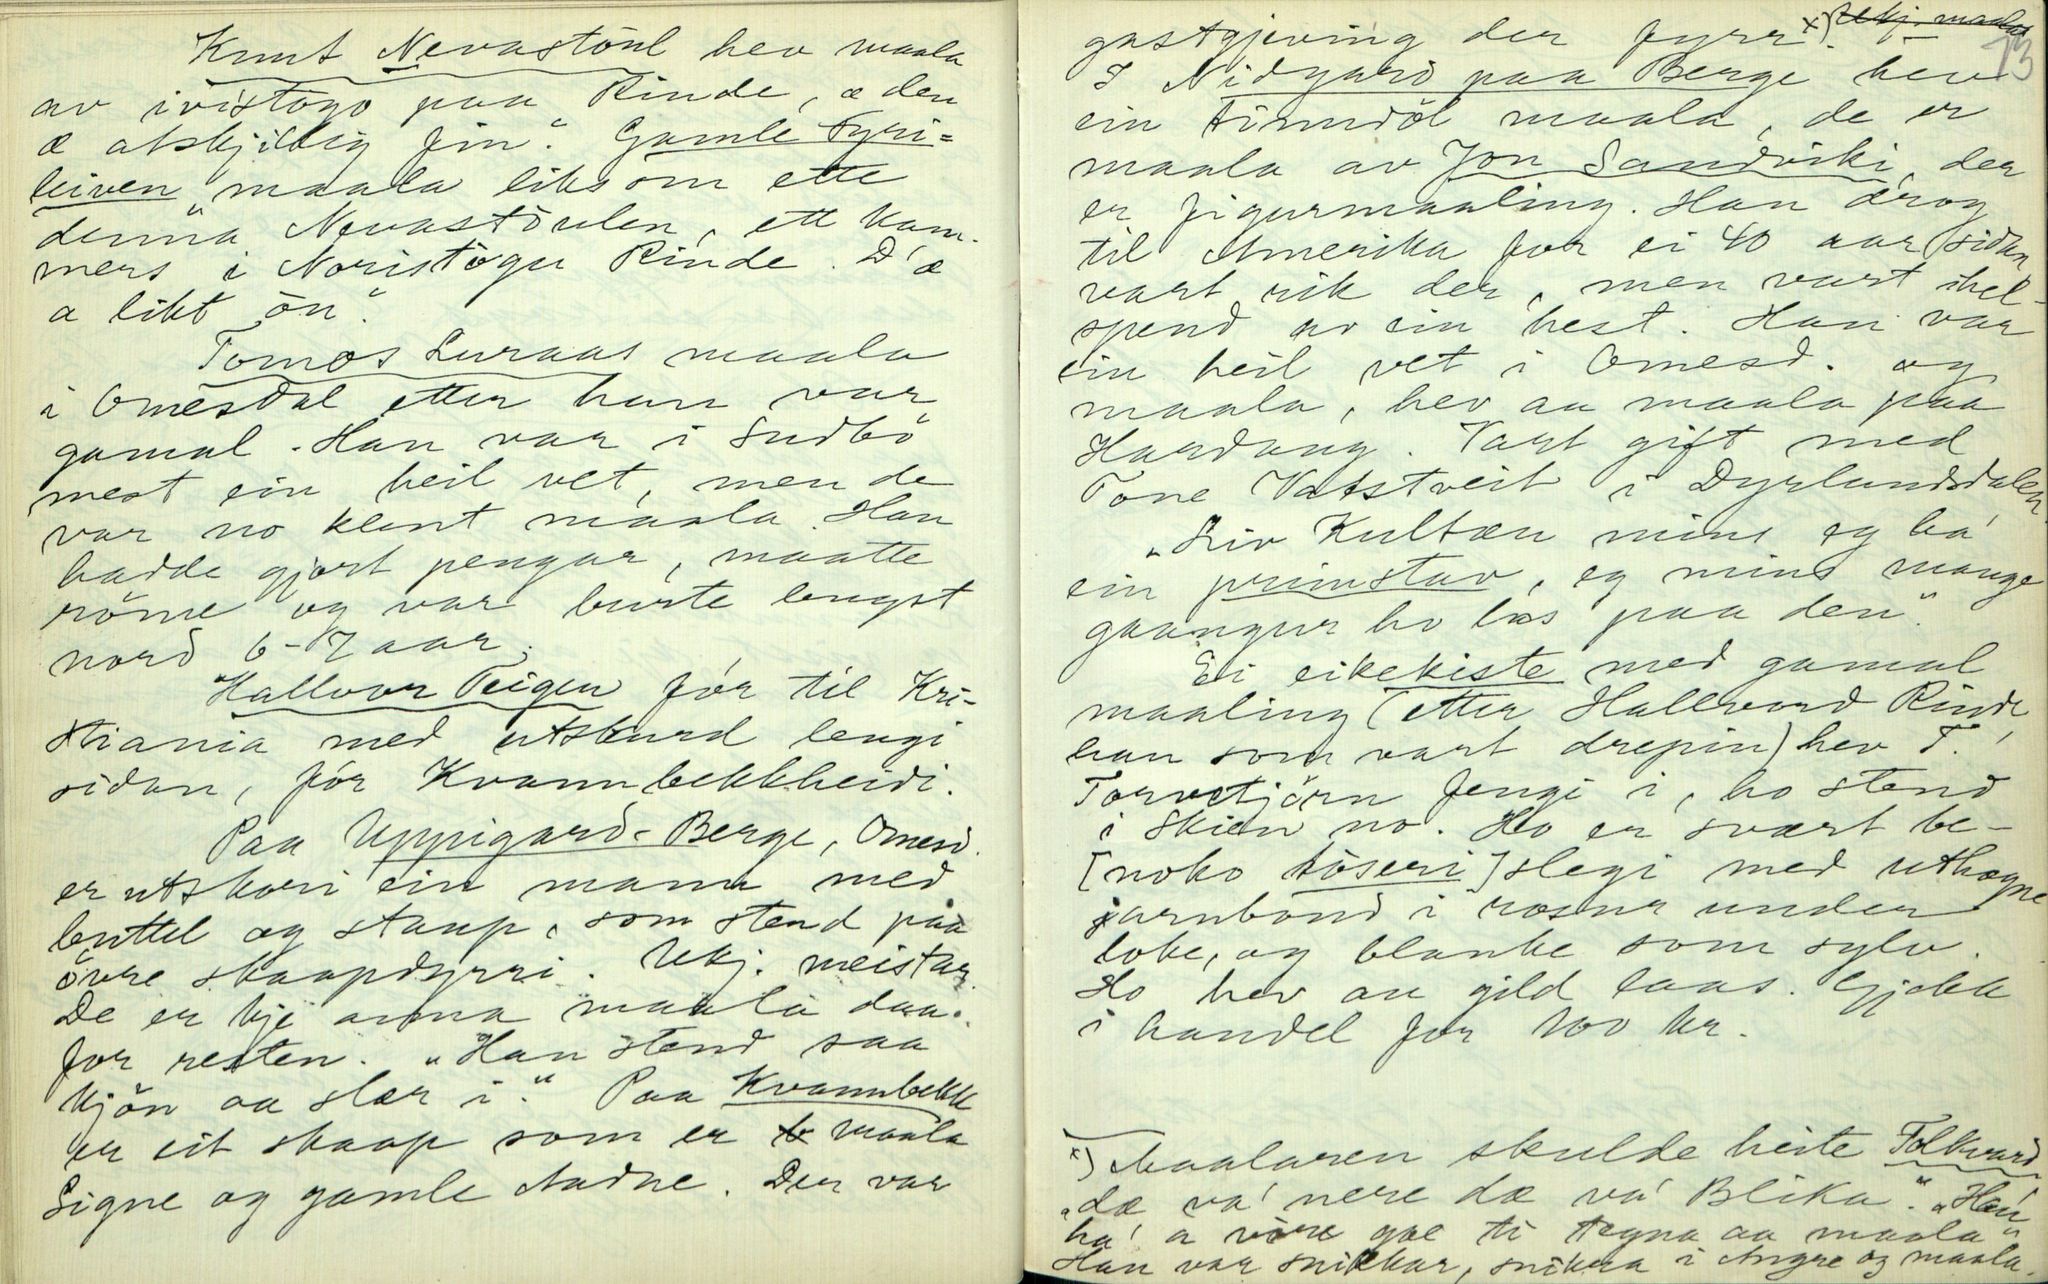 Knut Nevastöul hev maala
av ivistogo paa Rinde, "æ den
æ atskjillig fin". Gamle Fyri=
leiven "maala liksom ette
denna Nevastöulen, ett kam-
mers i Noristögu Rinde. D'æ
a likt ön".
Tomos Luraas maala
i Omesdal etter han var
gamal. Han var i Sudbö
mest ein heil vet, men de
var no klent maala. Han
hadde gjort pengar, maatte
röme og var burte lengst
nord 6-7 aar.
Hallvor Teigen fór til Kri-
stiania med utskurd lengi
sidan, fór Kvannbekkheidi.
Paa Uppigard-Berge, Omesd.
er utskori ein mann med
buttel og staup, som stend paa
övre skaapdyrri. Ukj. meistar.
De er kje anna maala daa.
for resten. "Han stend saa
kjön aa slær i." Paa Kvannbekk
er eit skaap som er maala
Signe og gamle Aadne. Der var
gastgjeving der fyrr x). ukj. maalar
13
I Nidgard paa Berge hev
ein tinndöl maala, de er
maala av Jon Sandviki, der
er figurmaaling. Han drog
til Amerika for ei 40 aar sidan
vart rik der, men vart ihel-
spend av ein hest. Han var
ein heil vet i Omesd. og
maala, hev au maala paa
Hardang. Vart gift med
Tone Vatstveit i Dyrlandsdalen.
"Liv Kultæn mins eg ha'
ein primstav, eg mins mange
gaangur ho las paa den".
Ei eikekiste med gamal
maaling (etter Hallvord Rinde,
han som vart drepin) hev T.
Torvetjörn fengi i, ho stend
i Skien no. Ho er svært be-
[noko töseri] slegi med uthogne
jarnbond i rosur under
loke, og blanke som sylv.
Ho hev au gild laas. Gjekk
i handel for 100 kr.
x) Maalaren skulde heite Folkvard
"dæ va' nere dæ va' Blika". "Han
ha' a vore gæ ti tegna aa maala"
Han var snikkar, snikra i Angre og maala.